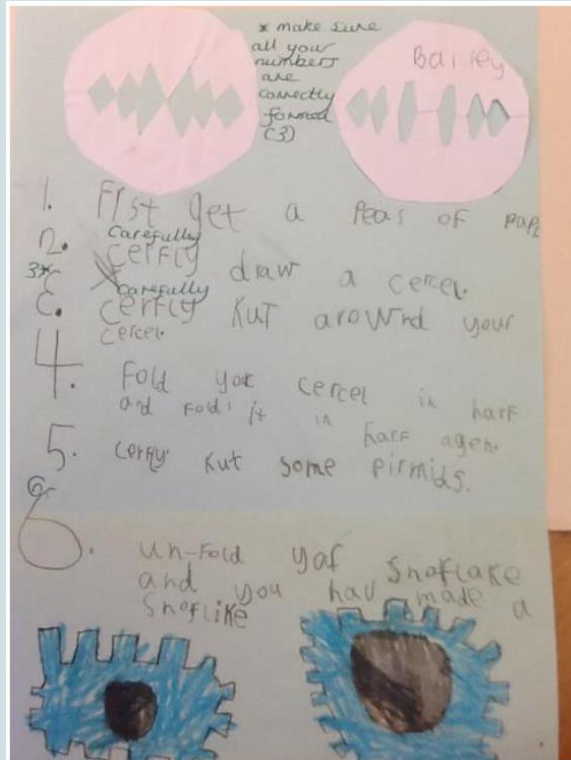 * make sure
all your
numbers
are
correctly
formed
(3)
Bailey
1. First get a Peas of pape
Carefully
2. cerfly draw a cercel.
3*
Carefully
3. cerfly Kut arownd your
cercel.
4. Fold your cercel in harf
and fold it in
harf agen.
5. cerfly. Kut some pirmids.
6
6. un-Fold yor Snoflake
and you hav made a
Snoflike